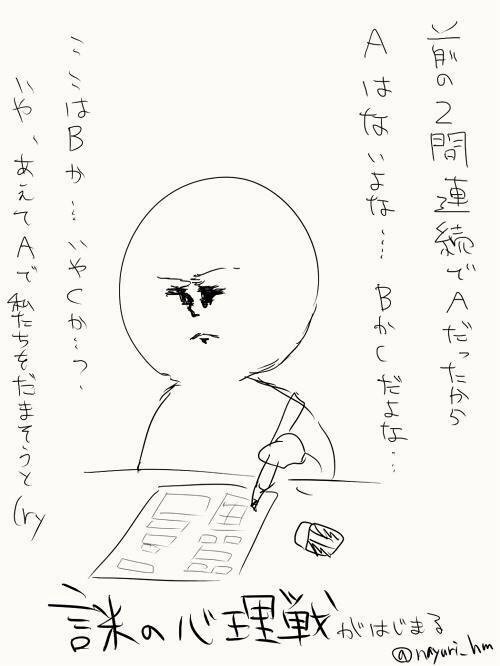 前の2問連続でAだったから
Aはないよな…. BかCだよな…
ここはBか…. いやCか…っ、
いや、あえてAで私たちをだまそうと(ry
謎の心理戦がはじまる
@nayuri_hm